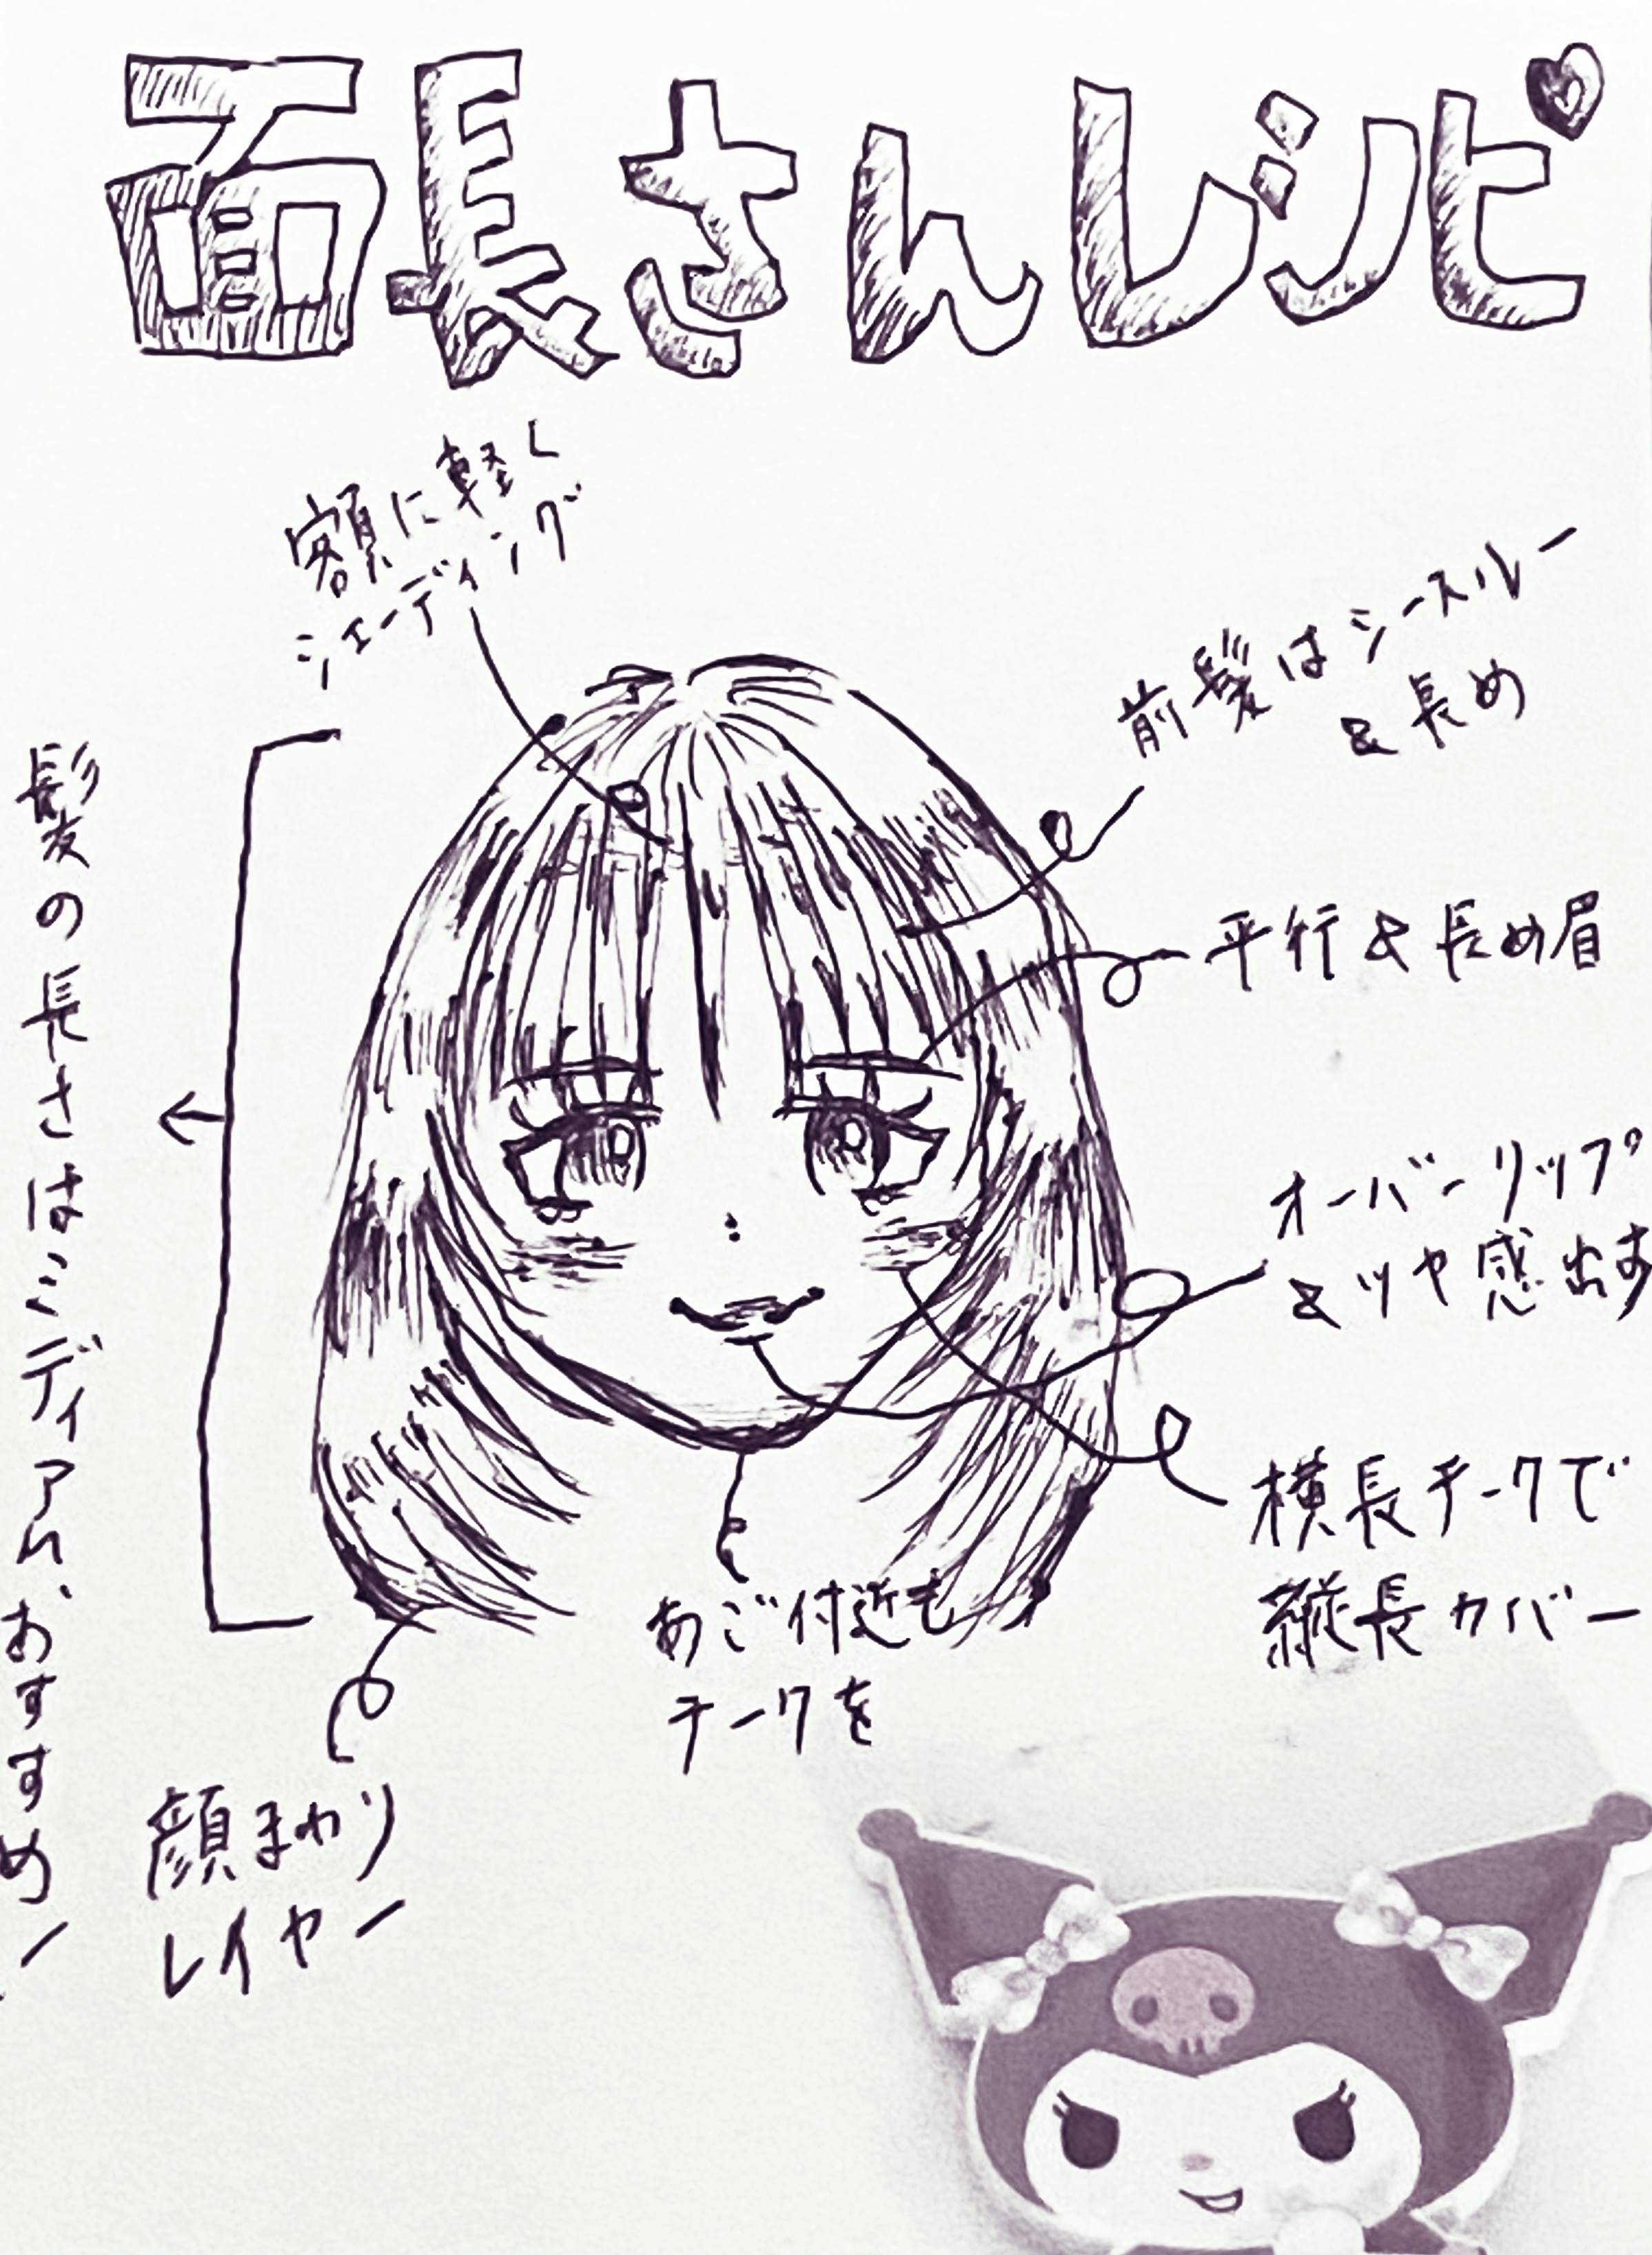 面長さんレシピ
額に軽く
シェーディング
前髪はシースルー
&長め
平行&長め眉
オーバーリップ
&ツヤ感出す
横長チークで
縦長カバー
あご付近も
チークを
顔まわり
レイヤー
髪の長さはミディアム、おすすめー